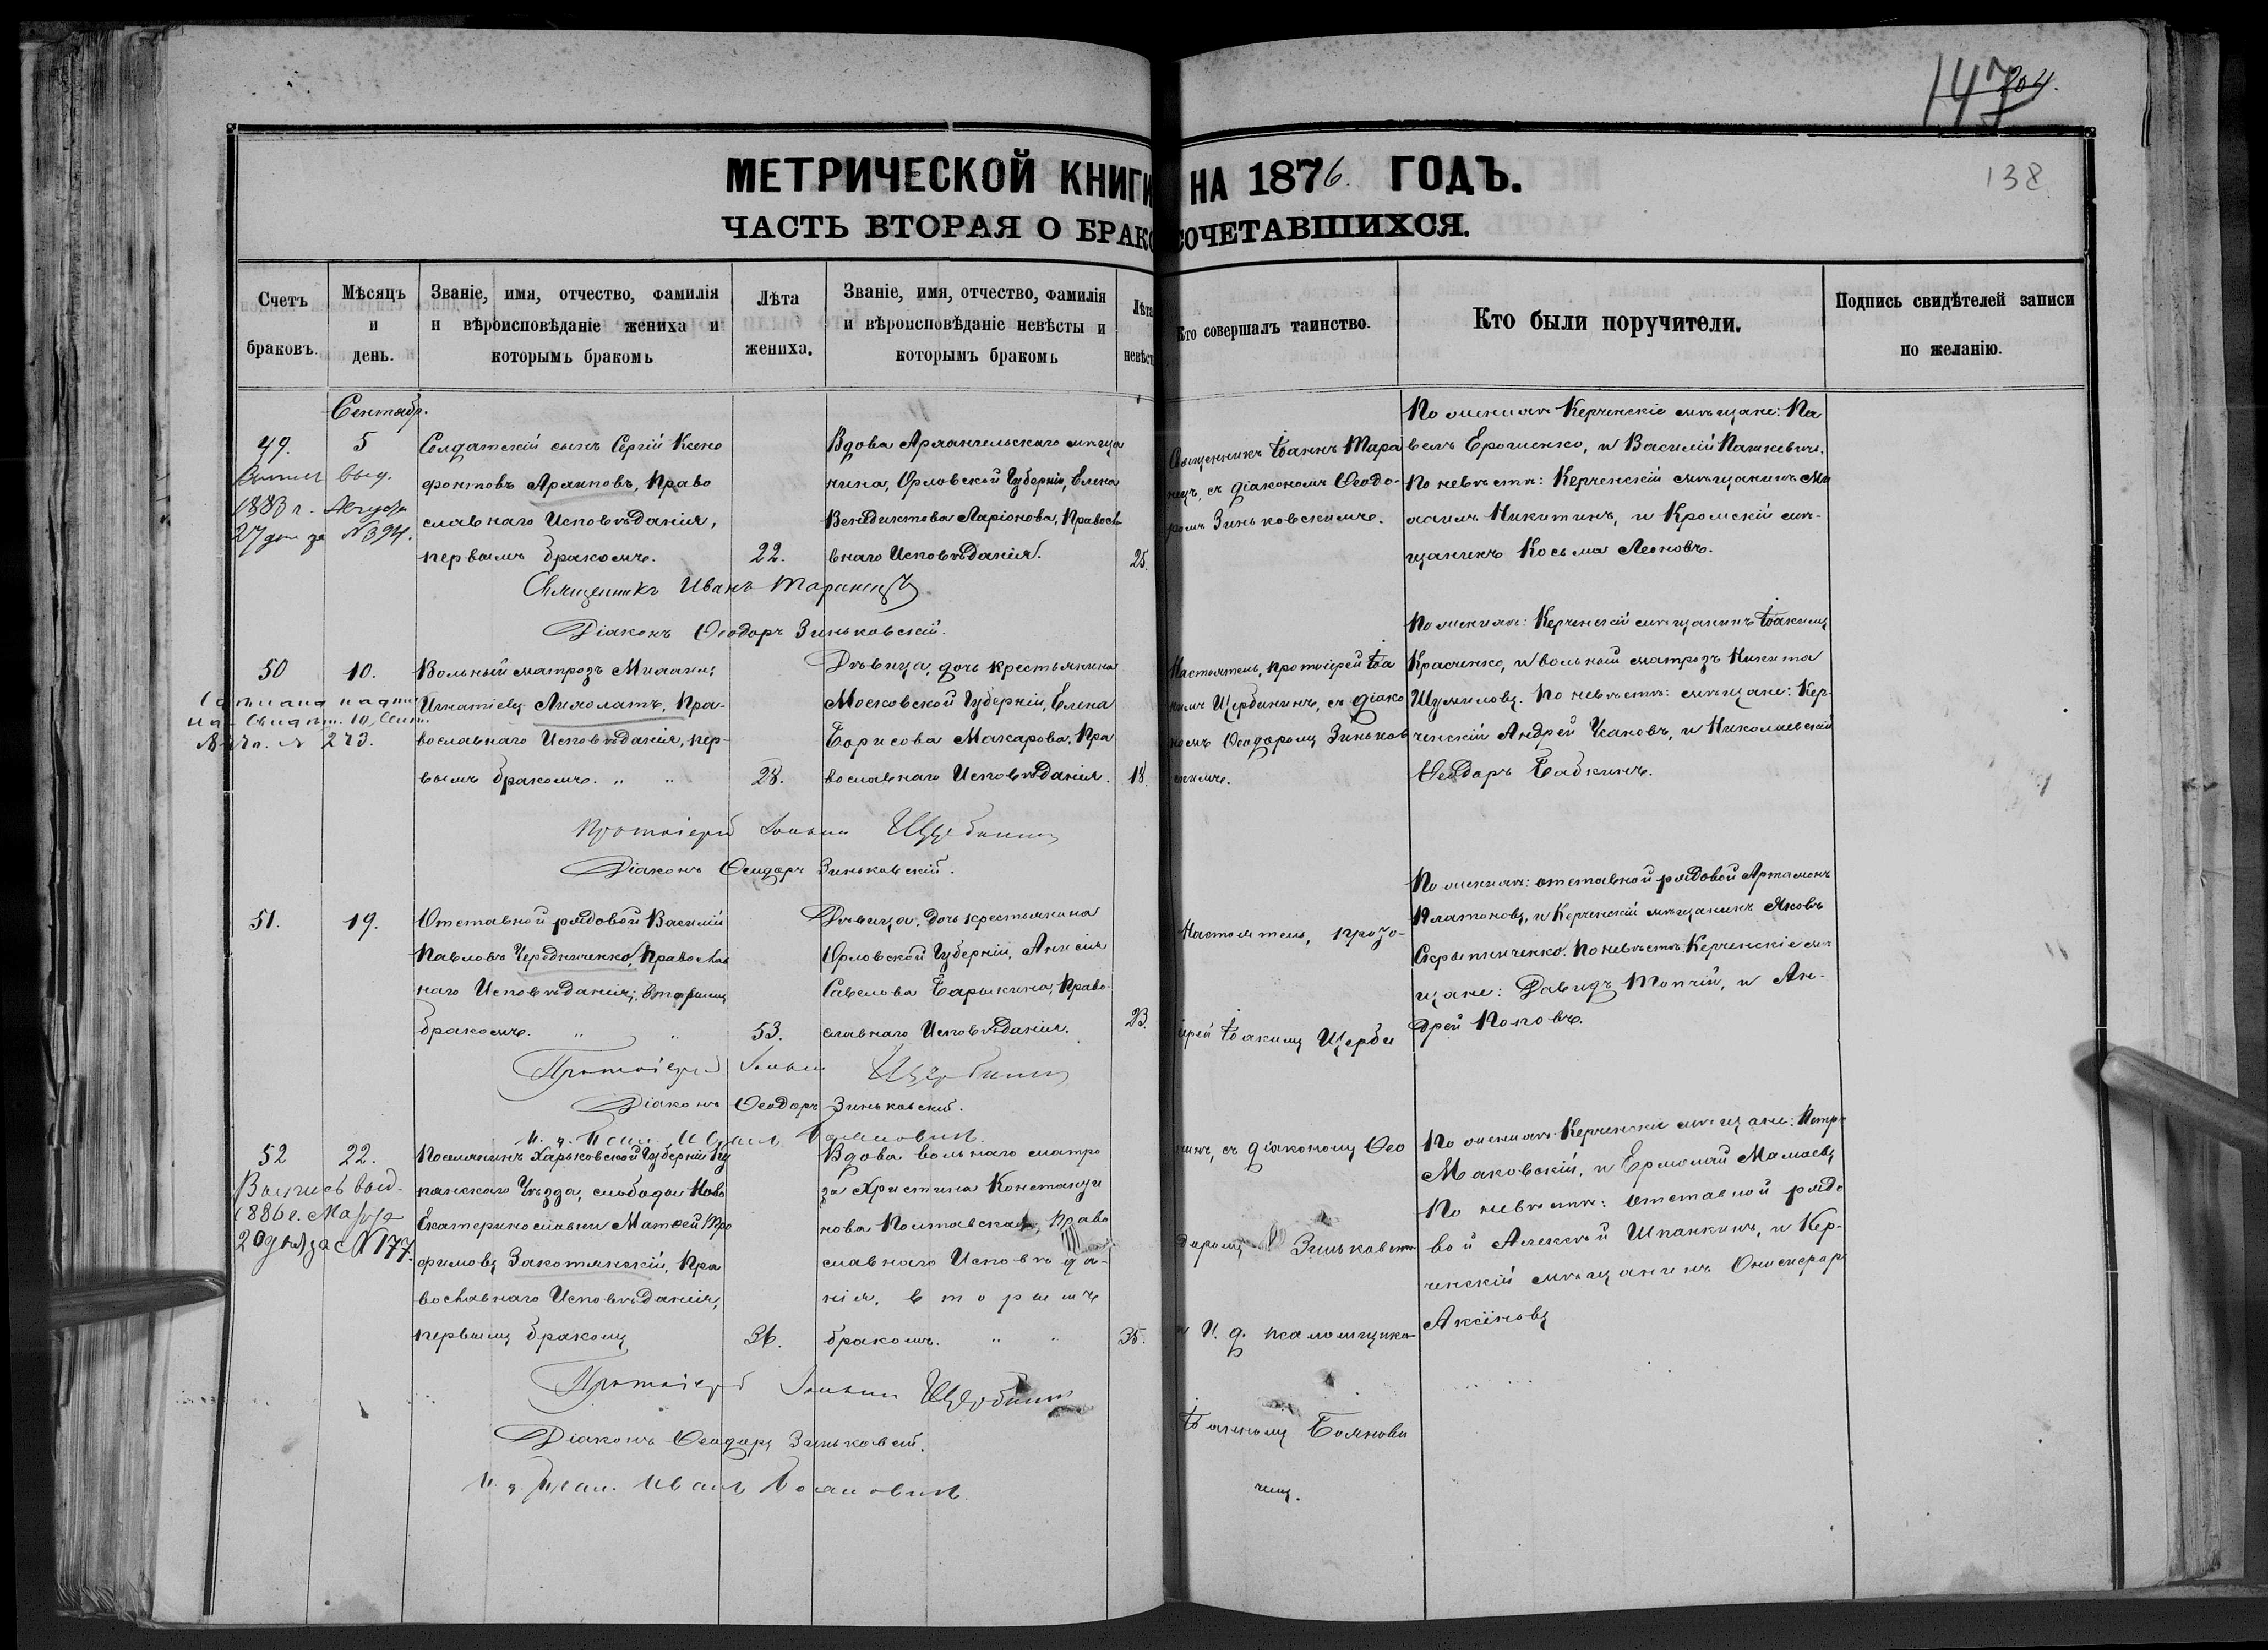 147
204.
138
МЕТРИЧЕСКОЙ КНИГИ НА 1876 ГОДЪ.
ЧАСТЬ ВТОРАЯ О БРАКОСОЧЕТАВШИХСЯ.
Счетъ браковъ.
Мѣсяцъ и день.
Званіе, имя, отчество, фамилія
и вѣроисповѣданіе жениха и
которымъ бракомъ
Лѣта
жениха.
Званіе, имя, отчество, фамилія
и вѣроисповѣданіе невѣсты и
которымъ бракомъ
Лѣта
невѣст
Кто совершалъ таинство.
Кто были поручители.
Подпись свидѣтелей записи
по желанію.
Сентябр.
49.
5
выд.
1883 г.
27 дня за № 394.
Солдатскій сынъ Сергій Ксено
фонтовъ Архиповъ, Право
славнаго Исповѣданія,
первымъ бракомъ.
22.
Вдова Архангельскаго мѣща
нина, Орловской Губерніи, Елена
Венедиктова Ларіонова, Правосла
внаго Исповѣданія.
25.
Священникъ Іоаннъ Тара
нецъ, съ діакономъ Ѳеодо-
ромъ Зиньковскимъ.
По женихѣ Керченскіе мѣщане: Па
велъ Ерошенко, и Василій Пашкевичъ.
По невѣстѣ: Керченскій мѣщанинъ Ми
хаилъ Никитинъ, и Кромскій мѣ-
щанинъ Косьма Леоновъ.
Священникъ Иванъ Таранецъ
Діаконъ Ѳеодоръ Зиньковскій.
50
10.
№ 273.
Вольный матрозъ Михаилъ
Игнатіевъ Лихолатъ, Пра-
вославнаго Исповѣданія, пер-
вымъ бракомъ. " "
28.
Дѣвица, дочь крестьянина
Московской Губерніи, Елена
Борисова Макарова, Пра
вославнаго Исповѣданія.
18
Настоятель, протоіерей Іоа
кимъ Щербининъ, съ діако
номъ Ѳеодоромъ Зиньков
скимъ.
По женихѣ: Керченскій мѣщанинъ Іоакимъ
Красченко, и вольный матрозъ Никита
Шумиловъ. По невѣстѣ: мѣщане: Кер-
ченскій Андрей Ивановъ, и Николаевскій
Ѳеодоръ Бабкинъ.
Протоіерей Іоакимъ Щербининъ
Діаконъ Ѳеодоръ Зиньковскій.
51.
19.
Отставной рядовой Василій
Павловъ Чередниченко, Православ
наго Исповѣданія, вторымъ
бракомъ. " "
53.
Дѣвица, дочь крестьянина
Орловской Губерніи, Анисія
Савелова Барыкина, Право-
славнаго Исповѣданія.
23.
Настоятель, прото-
іерей Іоакимъ Щерби
По женихѣ: отставной рядовой Артамонъ
Платоновъ, и Керченскій мѣщанинъ Яковъ
Скрыпниченко. По невѣстѣ: Керченскіе мѣ
щане: Давидъ Топчій, и Ан-
дрей Поповъ.
Протоіерей Іоакимъ Щербининъ
Діаконъ Ѳеодоръ Зиньковскій.
И. д. Псал. Иванъ Бояновичъ
52
22.
Выпись выд.
1886 г. Марта
20 дня за № 177.
Поселянинъ Харьковской Губерніи Ку
пянскаго Уѣзда, слободы Ново
Екатеринославки Матвей Тро
фимовъ Закотянскій, Пра
вославнаго Исповѣданія,
первымъ бракомъ
36.
Вдова вольнаго матро
за Христина Констанди
нова Полтавская, Право
славнаго Исповѣда-
нія, вторымъ
бракомъ. " "
35.
нинъ, съ діакономъ Ѳео
доромъ Зиньковским
и И. д. псаломщика
Іоанномъ Боянови
чемъ.
По женихѣ Керченскіе мѣщане: Петръ
Маковскій, и Ермолай Мамаевъ
По невѣстѣ: отставной рядо
вой Алексѣй Шпанкинъ, и Кер-
ченскій мѣщанинъ Онисифоръ
Аксіновъ
Протоіерей Іоакимъ Щербининъ
Діаконъ Ѳеодоръ Зиньковскій.
И. д. Псал. Иванъ Бояновичъ